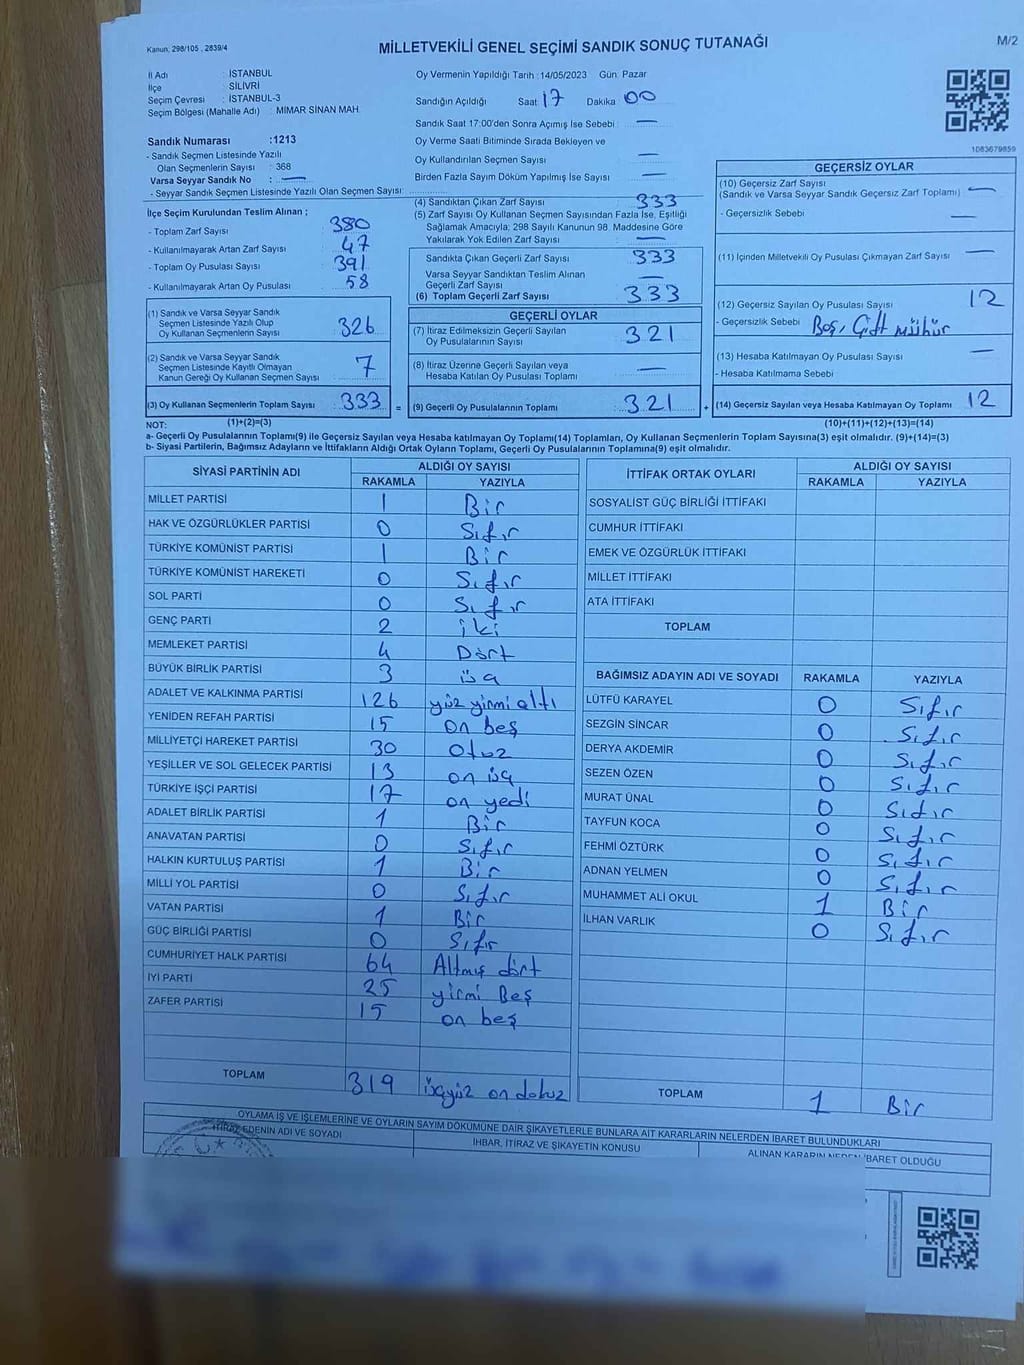 Kanun; 298/105 , 2839/4
MİLLETVEKİLİ GENEL SEÇİMİ SANDIK SONUÇ TUTANAĞI
M/2
İl Adı : İSTANBUL
İlçe : SİLİVRİ
Seçim Çevresi : İSTANBUL-3
Seçim Bölgesi (Mahalle Adı) : MIMAR SİNAN MAH.
Sandık Numarası :1213
- Sandık Seçmen Listesinde Yazılı
Olan Seçmenlerin Sayısı : 368
Varsa Seyyar Sandık No : —
- Seyyar Sandık Seçmen Listesinde Yazılı Olan Seçmen Sayısı:
Oy Vermenin Yapıldığı Tarih :14/05/2023 Gün Pazar
Sandığın Açıldığı Saat 17 Dakika 00
Sandık Saat 17:00'den Sonra Açımış İse Sebebi : —
Oy Verme Saati Bitiminde Sırada Bekleyen ve
Oy Kullandırılan Seçmen Sayısı : —
Birden Fazla Sayım Döküm Yapılmış İse Sayısı : —
1083679859
İlçe Seçim Kurulundan Teslim Alınan ;
- Toplam Zarf Sayısı : 380
- Kullanılmayarak Artan Zarf Sayısı : 47
- Toplam Oy Pusulası Sayısı : 391
- Kullanılmayarak Artan Oy Pusulası : 58
(1) Sandık ve Varsa Seyyar Sandık
Seçmen Listesinde Yazılı Olup
Oy Kullanan Seçmenlerin Sayısı : 326
(2) Sandık ve Varsa Seyyar Sandık
Seçmen Listesinde Kayıtlı Olmayan
Kanun Gereği Oy Kullanan Seçmen Sayısı : 7
(3) Oy Kullanan Seçmenlerin Toplam Sayısı : 333 =
(1)+(2)=(3)
(4) Sandıktan Çıkan Zarf Sayısı : 333
(5) Zarf Sayısı Oy Kullanan Seçmen Sayısından Fazla İse, Eşitliği
Sağlamak Amacıyla; 298 Sayılı Kanunun 98. Maddesine Göre
Yakılarak Yok Edilen Zarf Sayısı : —
Sandıkta Çıkan Geçerli Zarf Sayısı : 333
Varsa Seyyar Sandıktan Teslim Alınan
Geçerli Zarf Sayısı : —
(6) Toplam Geçerli Zarf Sayısı : 333
GEÇERLİ OYLAR
(7) İtiraz Edilmeksizin Geçerli Sayılan
Oy Pusulalarının Sayısı : 321
(8) İtiraz Üzerine Geçerli Sayılan veya
Hesaba Katılan Oy Pusulası Toplamı : —
(9) Geçerli Oy Pusulalarının Toplamı : 321 +
GEÇERSİZ OYLAR
(10) Geçersiz Zarf Sayısı
(Sandık ve Varsa Seyyar Sandık Geçersiz Zarf Toplamı) : —
- Geçersizlik Sebebi : —
(11) İçinden Milletvekili Oy Pusulası Çıkmayan Zarf Sayısı : —
(12) Geçersiz Sayılan Oy Pusulası Sayısı : 12
- Geçersizlik Sebebi : Boş, Çift mühür
(13) Hesaba Katılmayan Oy Pusulası Sayısı : —
- Hesaba Katılmama Sebebi :
(14) Geçersiz Sayılan veya Hesaba Katılmayan Oy Pusulası Toplamı : 12
(10)+(11)+(12)+(13)=(14)
NOT:
a- Geçerli Oy Pusulalarının Toplamı(9) ile Geçersiz Sayılan veya Hesaba katılmayan Oy Toplamı(14) Toplamları, Oy Kullanan Seçmenlerin Toplam Sayısına(3) eşit olmalıdır. (9)+(14)=(3)
b- Siyasi Partilerin, Bağımsız Adayların ve İttifakların Aldığı Ortak Oyların Toplamı, Geçerli Oy Pusulalarının Toplamına(9) eşit olmalıdır.
SİYASİ PARTİNİN ADI ALDIĞI OY SAYISI
RAKAMLA YAZIYLA
MİLLET PARTİSİ 1 Bir
HAK VE ÖZGÜRLÜKLER PARTİSİ 0 Sıfır
TÜRKİYE KOMÜNİST PARTİSİ 1 Bir
TÜRKİYE KOMÜNİST HAREKETİ 0 Sıfır
SOL PARTİ 0 Sıfır
GENÇ PARTİ 2 iki
MEMLEKET PARTİSİ 4 Dört
BÜYÜK BİRLİK PARTİSİ 3 üç
ADALET VE KALKINMA PARTİSİ 126 yüz yirmi altı
YENİDEN REFAH PARTİSİ 15 on beş
MİLLİYETÇİ HAREKET PARTİSİ 30 Otuz
YEŞİLLER VE SOL GELECEK PARTİSİ 13 on üç
TÜRKİYE İŞÇİ PARTİSİ 17 on yedi
ADALET BİRLİK PARTİSİ 1 Bir
ANAVATAN PARTİSİ 0 Sıfır
HALKIN KURTULUŞ PARTİSİ 1 Bir
MİLLİ YOL PARTİSİ 0 Sıfır
VATAN PARTİSİ 1 Bir
GÜÇ BİRLİĞİ PARTİSİ 0 Sıfır
CUMHURİYET HALK PARTİSİ 64 Altmış dört
İYİ PARTİ 25 yirmi Beş
ZAFER PARTİSİ 15 on beş
TOPLAM 319 üçyüz on dokuz
İTTİFAK ORTAK OYLARI ALDIĞI OY SAYISI
RAKAMLA YAZIYLA
SOSYALİST GÜÇ BİRLİĞİ İTTİFAKI
CUMHUR İTTİFAKI
EMEK VE ÖZGÜRLÜK İTTİFAKI
MİLLET İTTİFAKI
ATA İTTİFAKI
TOPLAM
BAĞIMSIZ ADAYIN ADI VE SOYADI RAKAMLA YAZIYLA
LÜTFÜ KARAYEL 0 Sıfır
SEZGİN SİNCAR 0 Sıfır
DERYA AKDEMİR 0 Sıfır
SEZEN ÖZEN 0 Sıfır
MURAT ÜNAL 0 Sıfır
TAYFUN KOCA 0 Sıfır
FEHMİ ÖZTÜRK 0 Sıfır
ADNAN YELMEN 0 Sıfır
MUHAMMET ALİ OKUL 1 Bir
İLHAN VARLIK 0 Sıfır
TOPLAM 1 Bir
OYLAMA İŞ VE İŞLEMLERİNE VE OYLARIN SAYIM DÖKÜMÜNE DAİR ŞİKAYETLERLE BUNLARA AİT KARARLARIN NELERDEN İBARET BULUNDUKLARI
İTİRAZ EDENİN ADI VE SOYADI İHBAR, İTİRAZ VE ŞİKAYETİN KONUSU ALINAN KARARIN NEDEN İBARET OLDUĞU